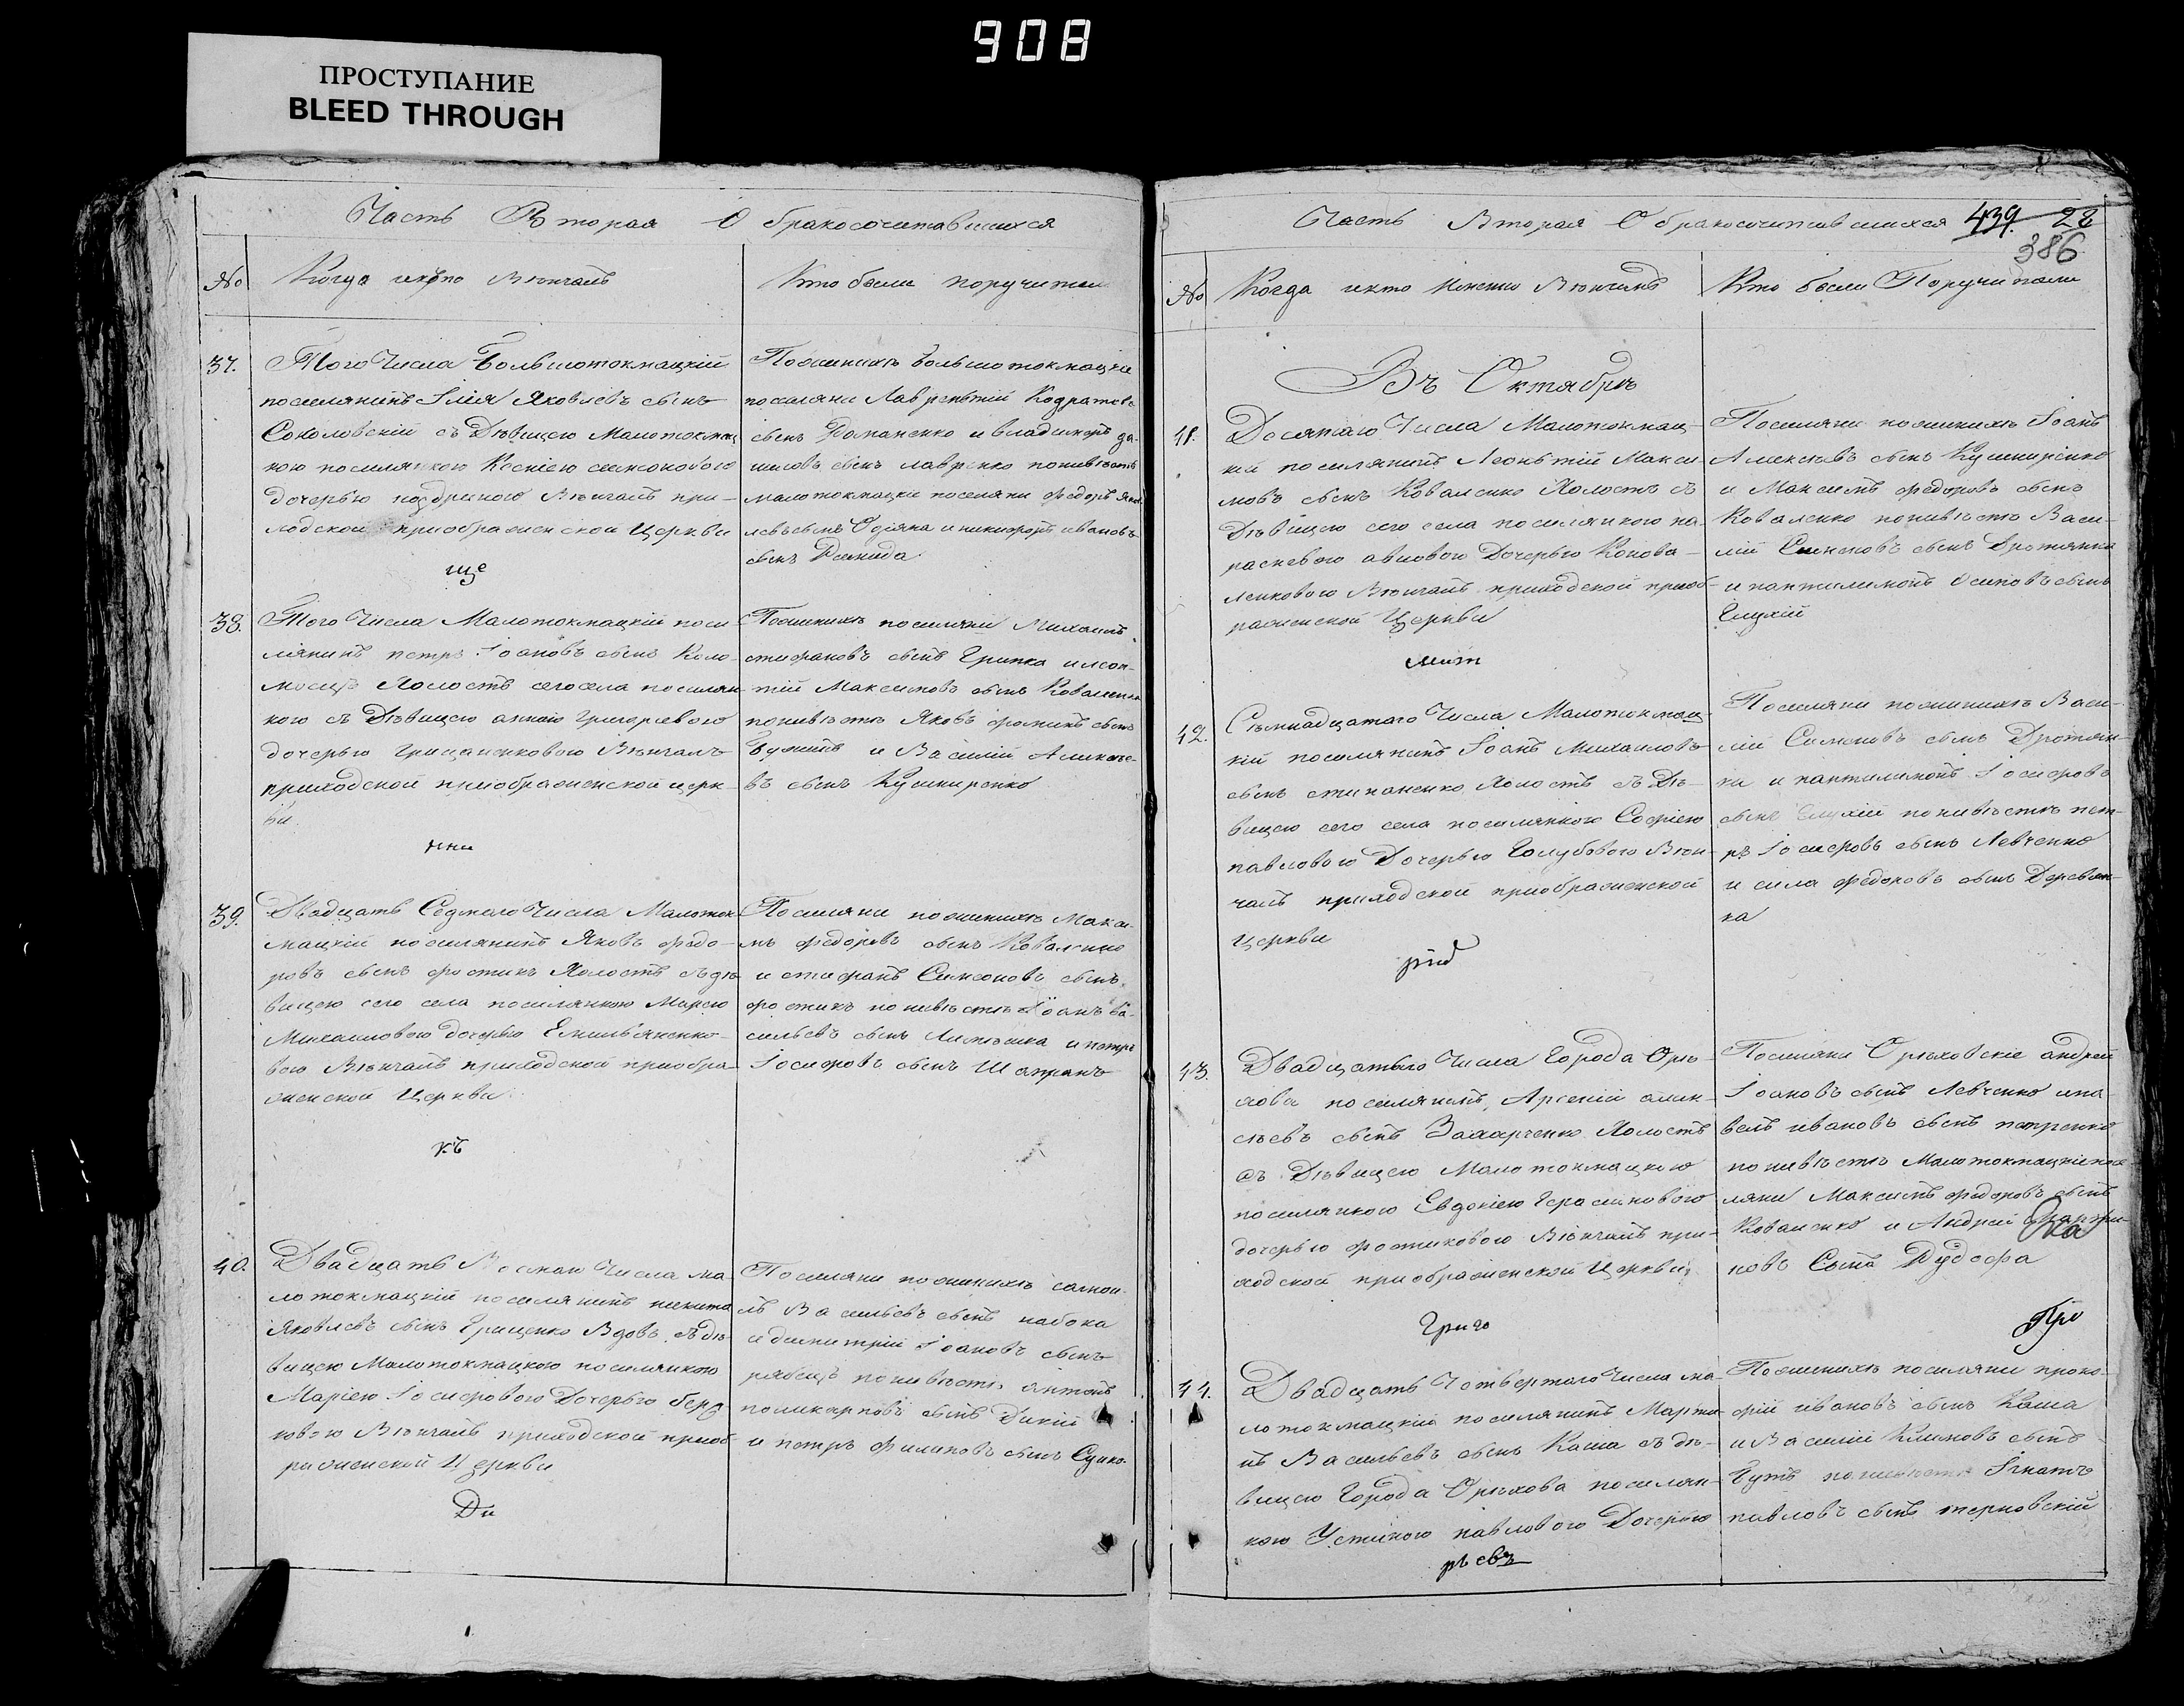 908
ПРОСТУПАНИЕ
BLEED THROUGH
Часть Вторая О бракосочетавшихся
№ Когда икто Венчанъ
Кто были поручители
37. Того Числа Большотокмацкій
поселянинъ Іілія Яковлевъ сынъ
Соколовскій съ Дѣвицею Малотокмац
кою поселянкою Ксеніею
дочерью Вѣнчанъ при-
ходской приображенской Церкви
ще
По женихѣ большотокмацкіе
поселяни Лаврентій Кодратов
сынъ Романенко и владимеръ да-
ниловъ сынъ лавренко поневѣстѣ
малотокмацкіе поселяни федоръ Яков
левъ сынъ и никифоръ ивановъ
сынъ Демида
38. Того Числа Малотокмацкій посе
лянинъ петръ Іоановъ сынъ Коло-
моецъ Холостъ сего села поселян
кою съ Дѣвицею анною григориевою
дочерью грицаенковою Вѣнчалъ
приходской приображенской церк-
ви
нни
По женихѣ поселяни Михаилъ
стифановъ сынъ Грипка илеон-
тій Максимовъ сынъ Коваленко
поневѣстѣ Яковъ фоминъ сынъ
и Василій Аликсѣе-
въ сынъ Кушниренко
39. Двадцать Седмаго Числа Малоток
мацкій поселянинъ Яковъ федо-
ровъ сынъ фостикъ Холостъ съ дѣ
вицею сего села поселянкою Марею
Михаиловою дочерью Емильяненко-
вою Вѣнчанъ приходской приобра-
женской Церкви
къ
Поселяни поженихѣ Макси-
мъ федоровъ сынъ Коваленко
и стифанъ Симеоновъ сынъ
фостикъ поневѣстѣ Іоанъ ва-
сильевъ сынъ и петръ
Іосифовъ сынъ Шапранъ
40. Двадцать Восмаго Числа ма-
лотокмацкій поселянинъ никита
Яковлевъ сынъ Гриценко Вдовъ съ дѣ-
вицею Малотокмацкою поселянкою
Маріею Іосифовою Дочерью
Вѣнчанъ приходской приоб-
раженской Церкви
Ди
Поселяни поженихѣ самои-
лъ Васильевъ сынъ набока
и димитрій Іоановъ сынъ
рябецъ поневѣстѣ антонъ
поликарповъ сынъ Дикій
и петръ Филиповъ сынъ
Часть Вторая О бракосочетавшихся 439. 28
386
№ Когда икто Именно Вѣнчанъ
Кто были Поручители
Въ Октябрѣ
41. Десятаго Числа Малотокмац-
кій поселянинъ Леонътій Макси
мовъ сынъ Коваленко Холостъ съ
Дѣвицею сего села поселянкою па-
раскевою Дочерью Конова-
ленковою Вѣнчанъ приходской приоб-
раженской Церкви
мит
Поселяни поженихѣ Іоанъ
Алексѣевъ сынъ Кушниренко
и Максимъ федоровъ сынъ
Коваленко поневѣстѣ Васи-
лій Симеоновъ сынъ Дротянка
и пантилимонъ Осиповъ сынъ
Глухій
42. Сѣмнадцатаго Числа Малотокмац-
кій поселянинъ Іоанъ Михаиловъ
сынъ стипаненко Холостъ съ Дѣ-
вицею сего села поселянкою Софіею
павловою Дочерью Голубовою Вѣн-
чанъ приходской приображенской
Церкви
рій
Поселяни поженихѣ Васи-
лій Симеоновъ сынъ Дротян-
ка и пантилимонъ Іосифовъ
сынъ Глухій поневѣстѣ пет-
ръ Іосифовъ сынъ Левченко
и сила федоровъ сынъ Деревян-
ка
43. Двадцатого Числа Города Орѣ-
хова поселянинъ Арсеній алек-
сѣевъ сынъ Захарченко Холостъ
съ Дѣвицею Малотокмацкою
поселянкою Евдокіею Герасимовою
дочерью фостиковою Вѣнчанъ при-
ходской приображенской Церкви
Григо
Поселяни Орѣховскіе андрей
Іоановъ сынъ Левченко ипа
велъ ивановъ сынъ петренко
поневѣстѣ Малотокмацкіе посе
ляни Максимъ федоровъ сынъ
Коваленко и Андрей марти-
новъ Сынъ
При
44. Двадцать Четвертаго Числа ма-
лотокмацкій поселянинъ Марти-
нъ Васильевъ сынъ Каша съ дѣ-
вицею Города Орѣхова поселян-
кою Устиною павловою Дочерью
рѣевъ
По женихѣ поселяни проко-
фій ивановъ сынъ Каша
и Василій Климовъ сынъ
поневѣстѣ Ігнатъ
павловъ сынъ терновскій